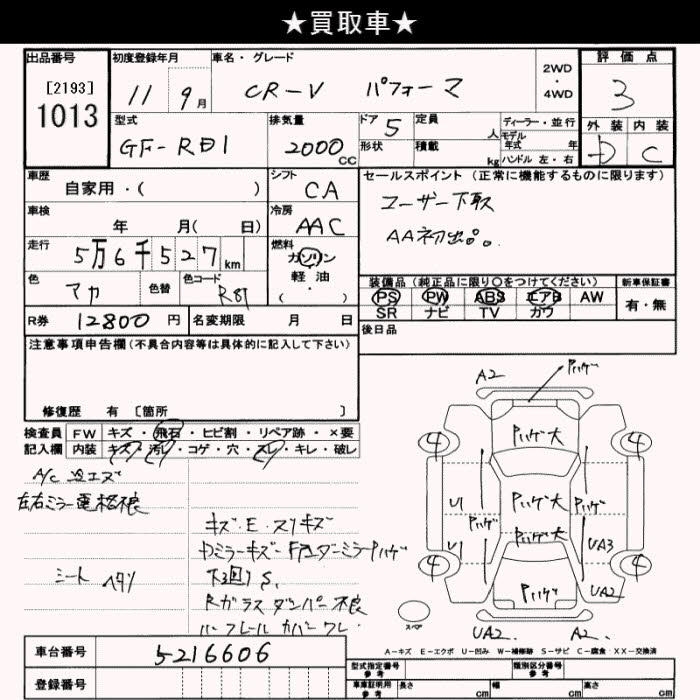 ★買取車★
出品番号 初度登録年月 車名・グレード 2WD・4WD 評価点
[2193] 1013 11 9月 CR-V パフォーマ 3
型式 排気量 ドア 定員 人 ディーラー・並行 外装 内装
モデル年式 年
GF-RD1 2000CC 5 形状 積載 kg ハンドル 左・右 D C
車歴 シフト セールスポイント (正常に機能するものに限ります)
自家用・( ) CA ユーザー下取
車検 冷房
年 月( 日) AAC AA初出品。
走行 燃料
5万6千527km ガソリン
軽油
( ・ )
色 色替 色コード 装備品 (純正品に限り〇をつけてください) 新車保証書
アカ R81 PS PW ABS エアB AW 有・無
SR ナビ TV カワ
R券 12800円 名変期限 月 日 後日品
注意事項申告欄(不具合内容等は具体的に記入して下さい)
修復歴 有 [箇所 ]
検査員 FW キズ・飛石・ヒビ割・リペア跡・×要
記入欄 内装 キズ・汚レ・コゲ・穴・スレ・キレ・破レ
A/C 冷エズ
左右ミラー電格不良
キズ・E・スリキズ
下回りS、
シート ヘタリ
Rガラスダンパー不良
A2 Pハゲ
4 Pハゲ大 4
U1 Pハゲ Pハゲ大 Pハゲ
U1 Pハゲ大 UA3
4 Pハゲ大 4
UA2
スペア UA2 A2
A-キズ E-エクボ U-凹み W-補修跡 S-サビ C-腐食 XX-交換済
車台番号 5216606
登録番号
型式指定番号 参考 類別区分番号 参考
車庫証明用 参考 長さ cm 幅 cm 高さ cm